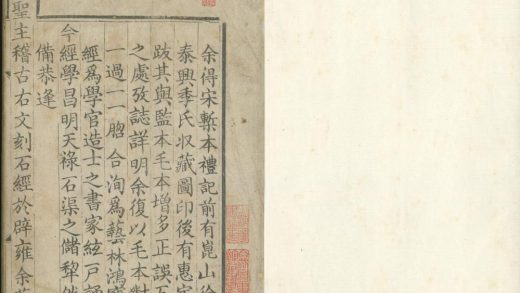 余得宋槧本禮記前有崑山徐
泰興季氏收藏圖印後有惠定
跋其與監本毛本增多正誤互
之處攷誌詳明余復以毛本對
一過一一脗合洵爲藝林鴻寶
經爲學官造士之書家絃戸誦
今經學昌明天祿石渠之儲犂然
備恭逢
聖主稽古右文刻石經於辟雍余